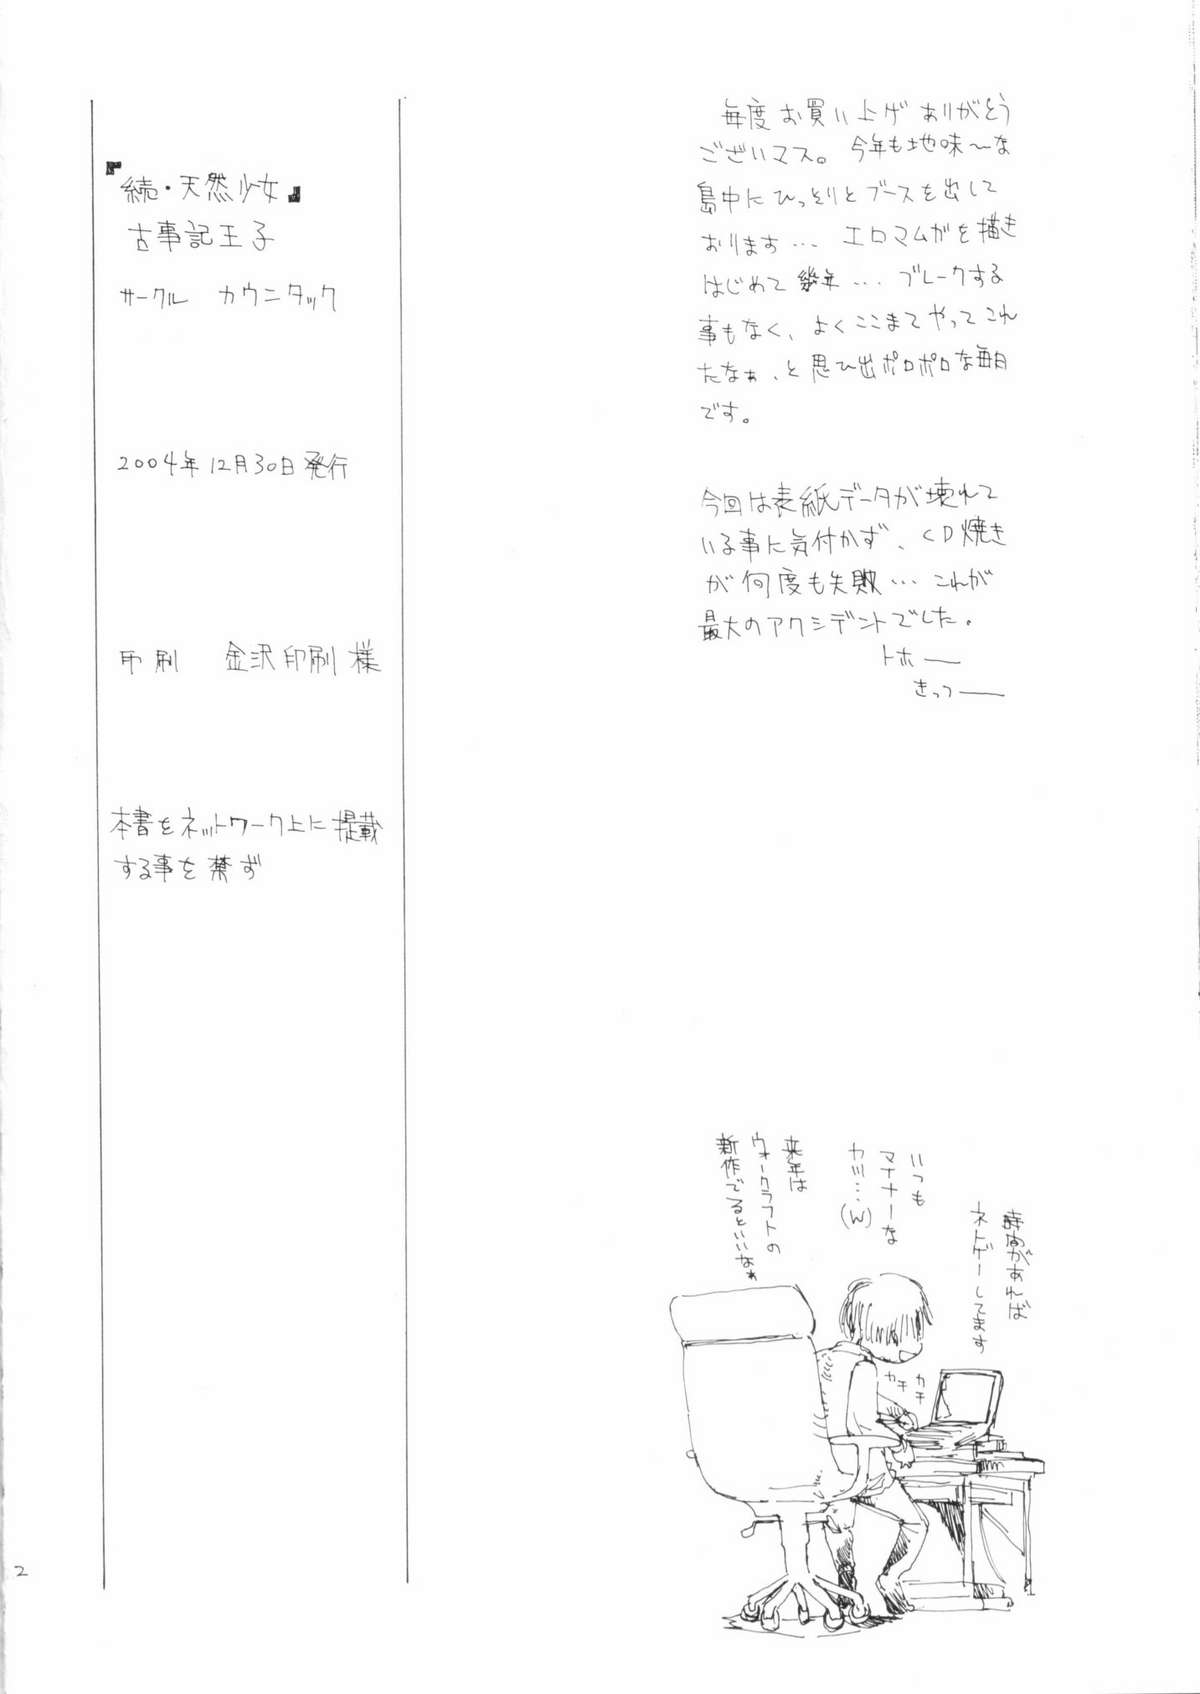 『続・天然少女』
古事記王子
サークル カウニタック
2004年12月30日発行
印刷 金沢印刷様
本書をネットワーク上に掲載
する事を禁ず
毎度お買い上げありがとう
ございマス。今年も地味〜な
島中にひっそりとブースを出して
おります… エロマムガを描き
はじめて幾年… ブレークする
事もなく、よくここまでやってこれ
たなぁ、と思ひ出ポロポロな毎日
です。
今回は表紙データが壊れて
いる事に気付かず、CD焼き
が何度も失敗… これが
最大のアクシデントでした。
トホ——
きっつ——
時間があれば
ネトゲーしてます
いつも
マイナーな
カ…(W)
来年は
ウォークラフトの
新作でるといいなぁ
カチ
カチ
2